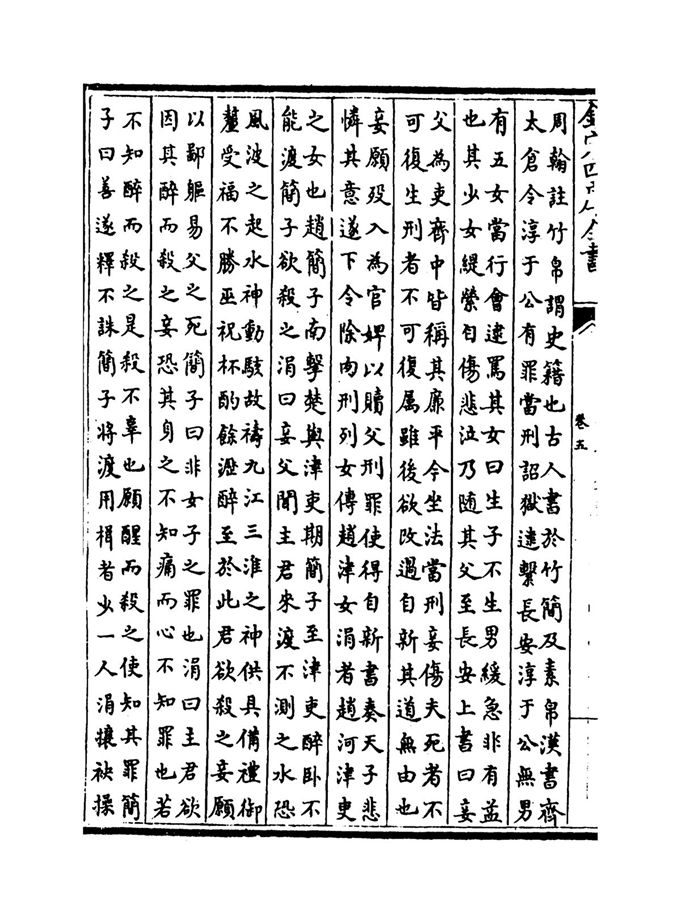 欽定四庫全書
卷五
周翰註竹帛謂史籍也古人書於竹簡及素帛漢書齊
太倉令淳于公有罪當刑詔獄逮繫長安淳于公無男
有五女當行會逮罵其女曰生子不生男緩急非有益
也其少女緹縈自傷悲泣乃隨其父至長安上書曰妾
父為吏齊中皆稱其廉平今坐法當刑妾傷夫死者不
可復生刑者不可復属雖後欲改過自新其道無由也
妾願沒入為官婢以贖父刑罪使得自新書奏天子悲
憐其意遂下令除肉刑列女傳趙津女涓者趙河津吏
之女也趙簡子南擊楚與津吏期簡子至津吏醉卧不
能渡簡子欲殺之涓曰妾父聞主君來渡不測之水恐
風波之起水神動駭故禱九江三淮之神供具備禮御
釐受福不勝巫祝杯酌餘瀝醉至於此君欲殺之妾願
以鄙軀易父之死簡子曰非女子之罪也涓曰主君欲
因其醉而殺之妾恐其身之不知痛而心不知罪也若
不知醉而殺之是殺不辜也願醒而殺之使知其罪簡
子曰善遂釋不誅簡子將渡用楫者少一人涓攘袂操